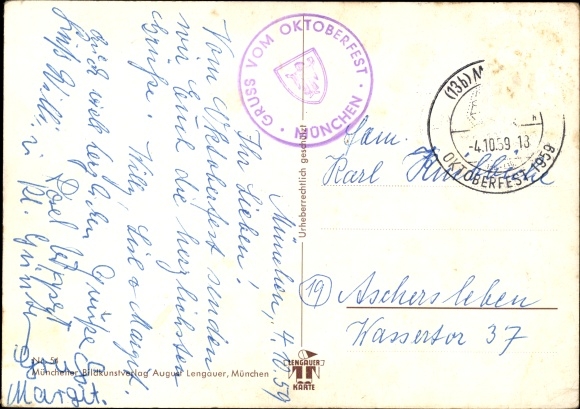 München, 4.10.59
Ihr Lieben!
Vom Oktoberfest senden
wir Euch die herzlichsten
Grüße. Willy, Lisl u. Margit.
Auch viele Grüße
Rosel
u. Kl. Günter
Margit.
GRUSS VOM OKTOBERFEST
MÜNCHEN
(13b)
-4.10.59.-18
OKTOBERFEST 1959
Fam.
Karl
(19) Aschersleben
Wassertor 37
Urheberrechtlich geschützt
Nr. 54
Münchener Bildkunstverlag August Lengauer, München
LENGAUER
KARTE